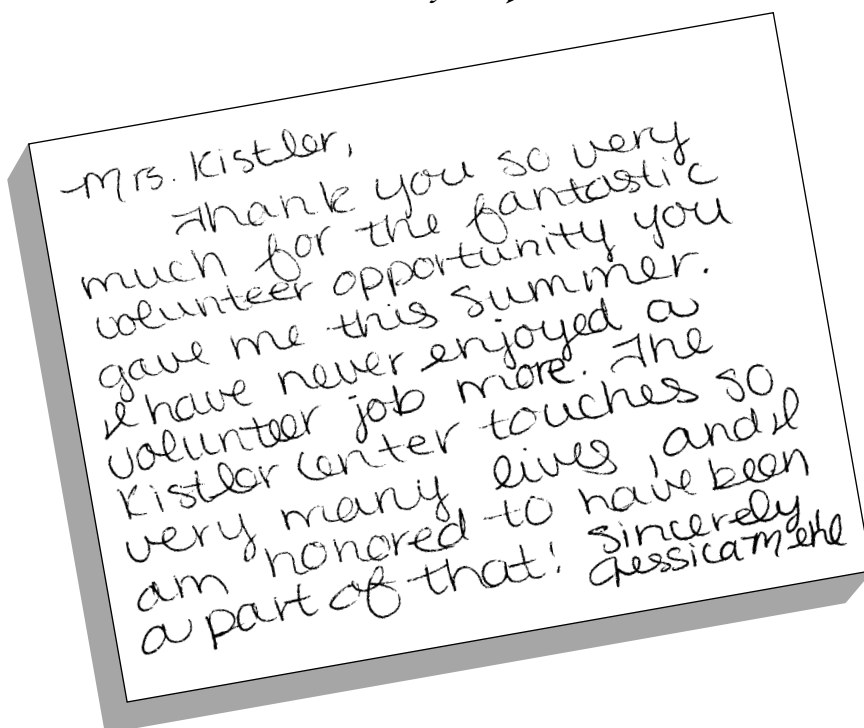 Mrs. Kistler,
Thank you so very
much for the fantastic
volunteer opportunity you
gave me this summer.
I have never enjoyed a
volunteer job more. The
Kistler Center touches so
very many lives, and I
am honored to have been
a part of that! Sincerely
Jessica